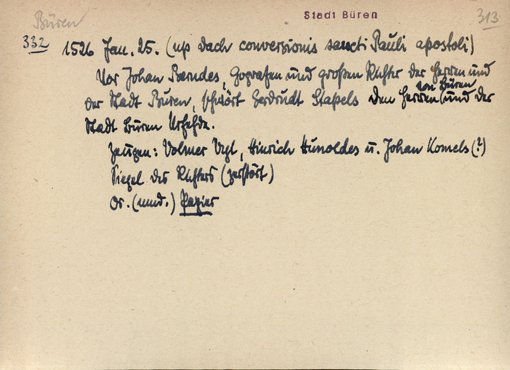 Büren
Stadt Büren
313
332
1526 Jan. 25. (up dach conversionis sancti Pauli apostoli)
Vor Johan Berndes, Gografen und großen Richter der Herren und
der Stadt Büren, schwört Gerdrudt Stapels den Herren von Büren und der
Stadt Büren Urfehde.
Zeugen: Volmer Vogt, Hinrich Hunoldes u. Johan Komels (?)
Siegel des Richters (zerstört)
Or. (nund.) Papier